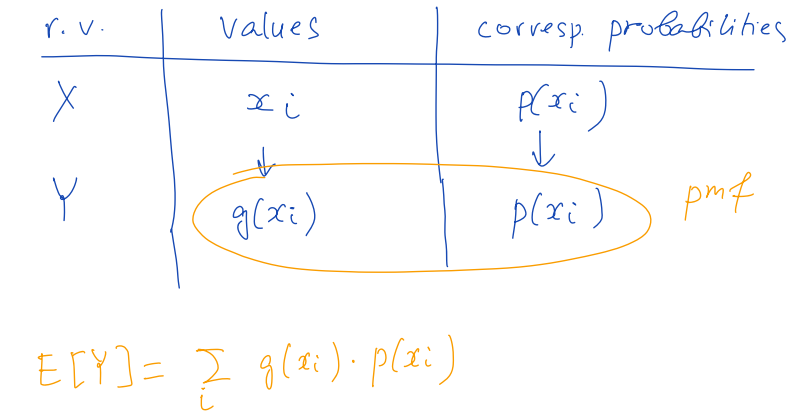 r.v. values corresp. probabilities
X xi p(xi)
Y g(xi) p(xi) pmf
E[Y] = ∑i g(xi) · p(xi)